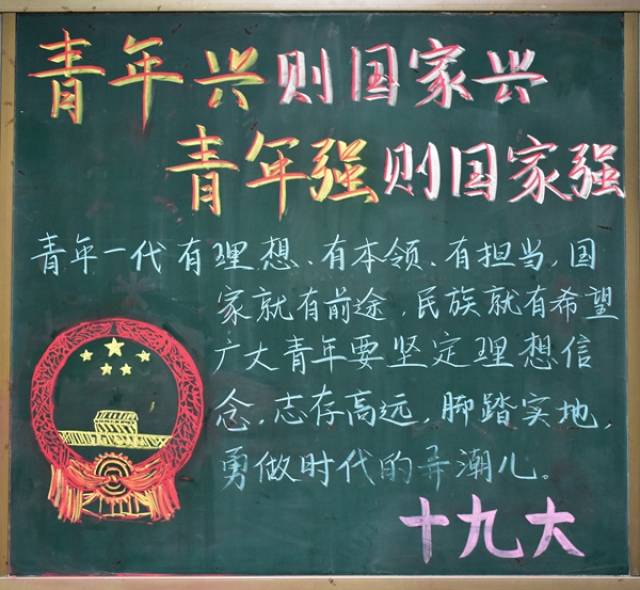 青年兴则国家兴
青年强则国家强
青年一代有理想、有本领、有担当,国
家就有前途,民族就有希望
广大青年要坚定理想信
念,志存高远,脚踏实地,
勇做时代的弄潮儿。
十九大